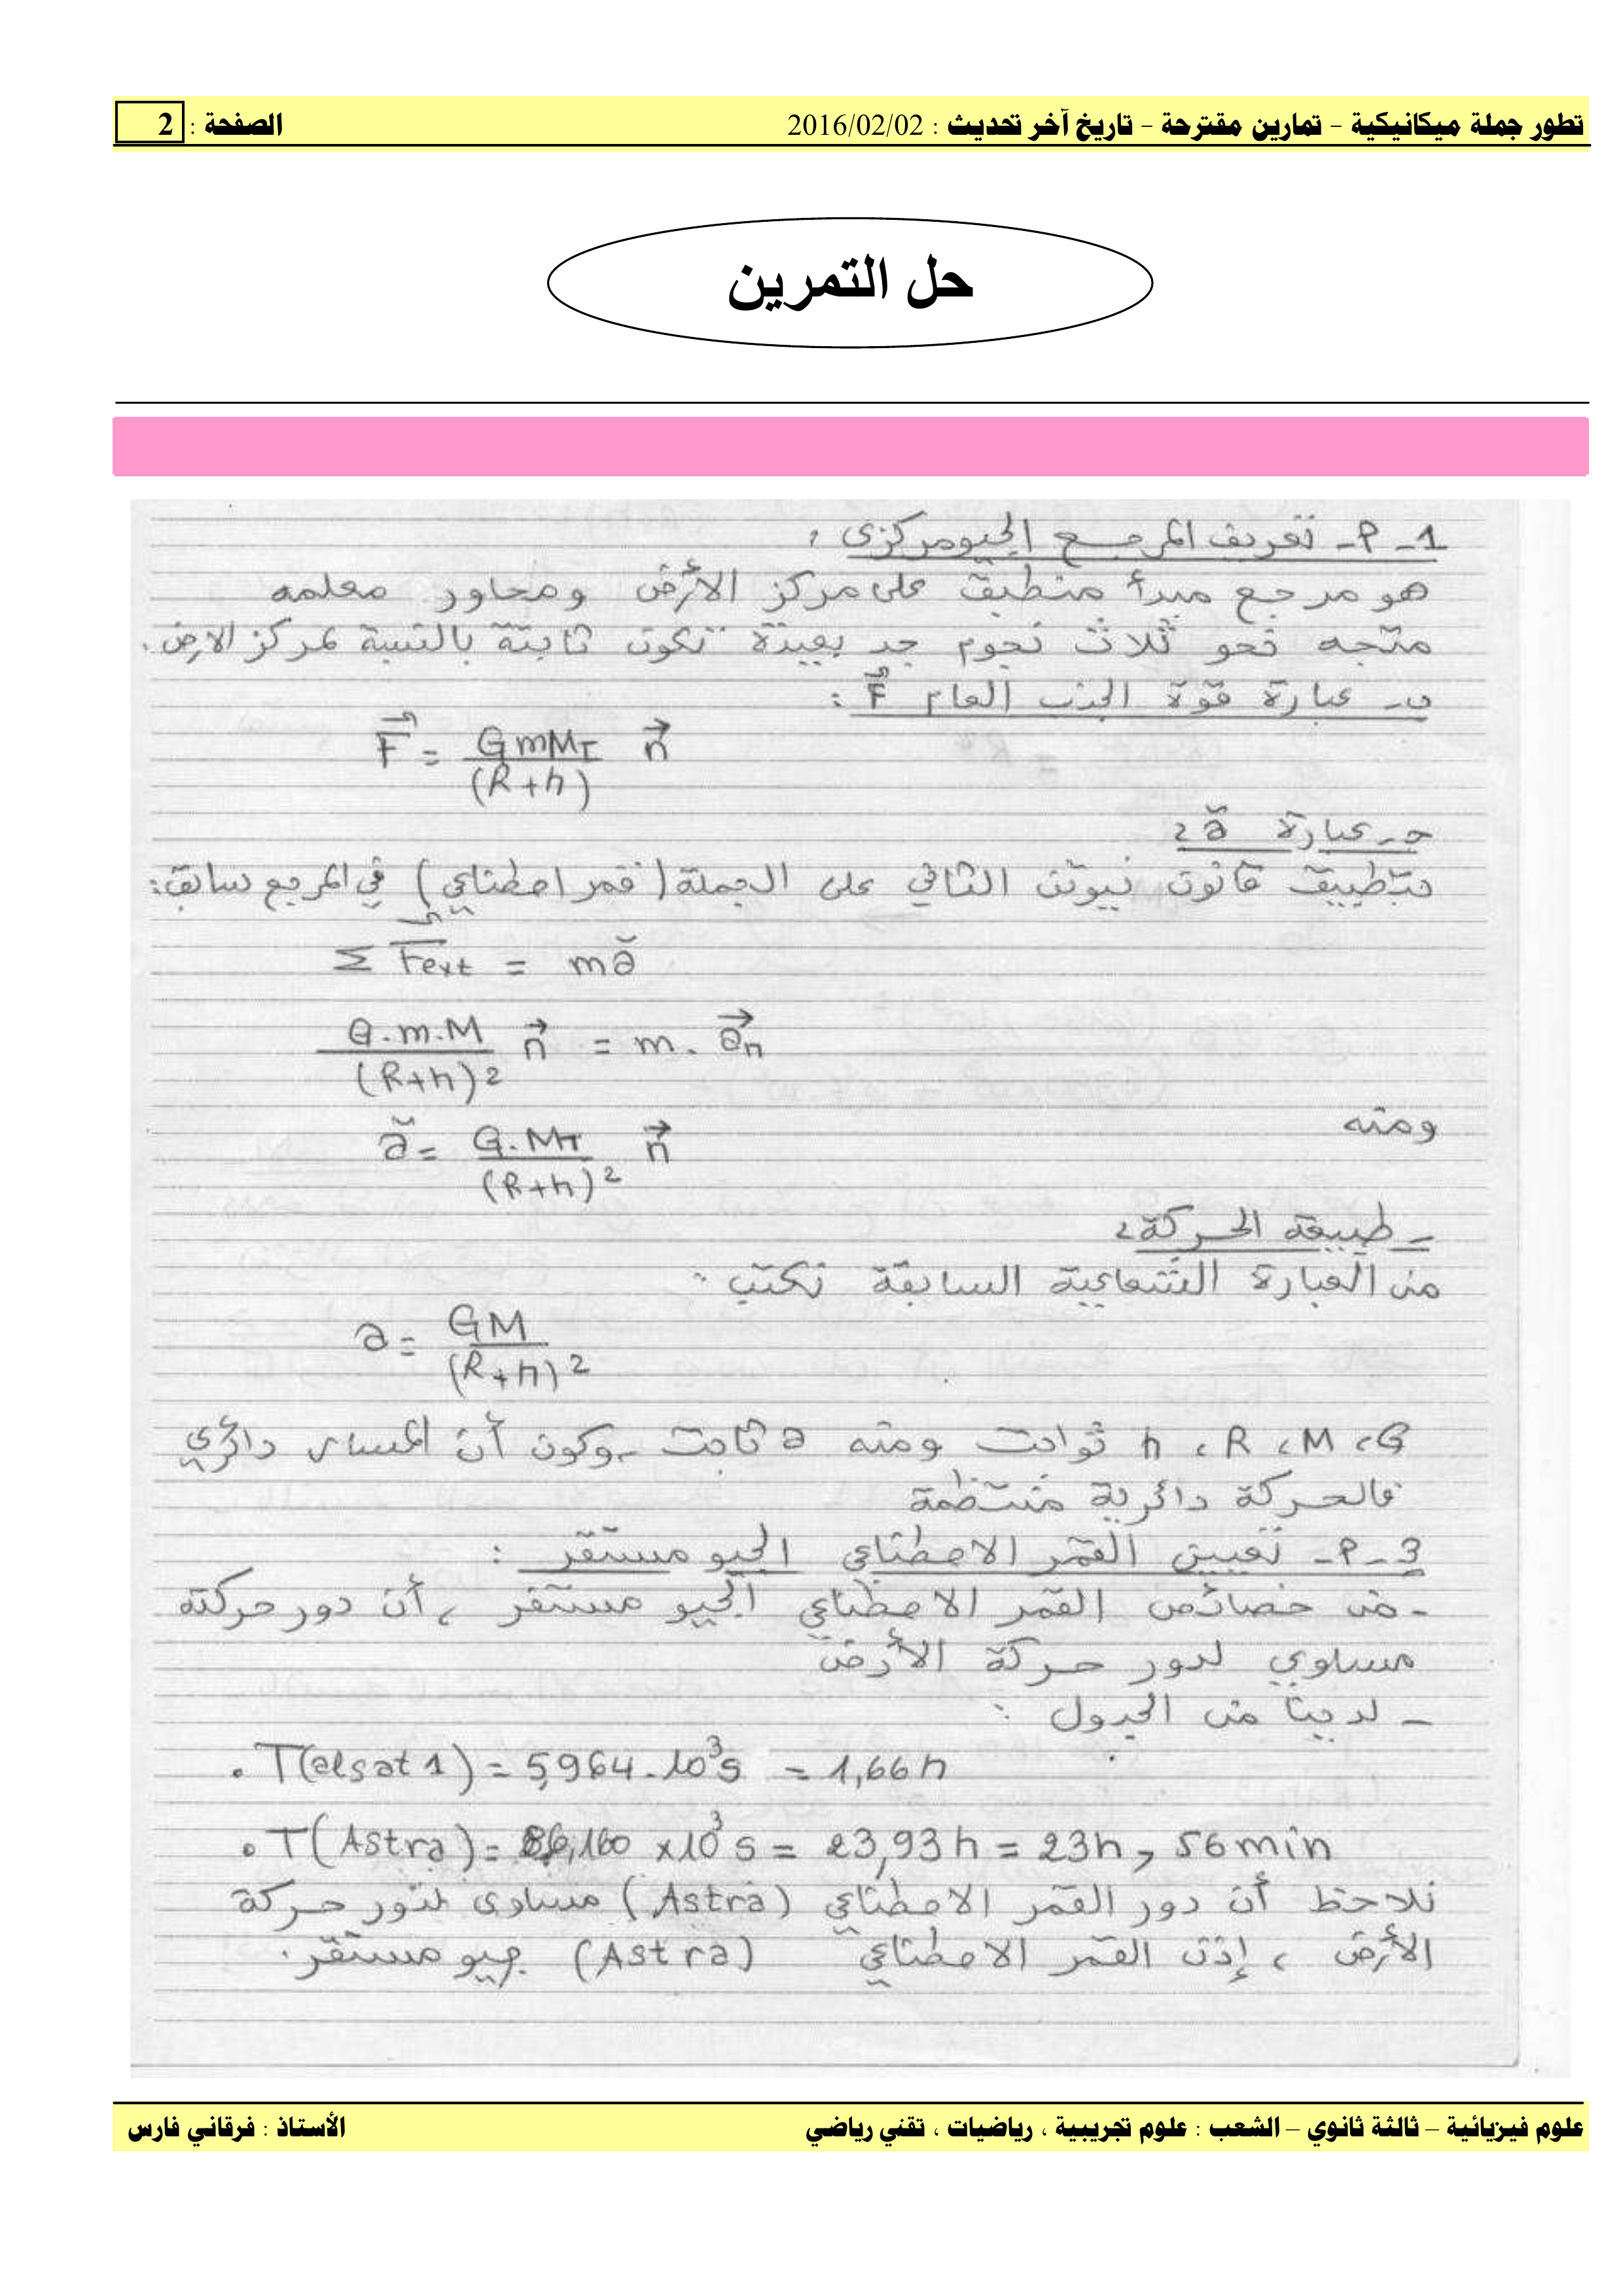 تطور جملة ميكانيكية – تمارين مقترحة – تاريخ آخر تحديث : 2016/02/02 الصفحة : 2
حل التمرين
1 - P - تعريف المرجع الجيومركزي :
هو مرجع مبدأ منطبق على مركز الأرض ومحاور معلمه
متجه نحو ثلاث نجوم جد بعيدة تكون ثابتة بالنسبة لمركز الارض .
ب - عبارة قوة الجذب العام F⃗ :
F⃗ = GmM_T / (R+h) n⃗
جـ - عبارة a⃗ :
بتطبيق قانون نيوتن الثاني على الجملة (قمر اصطناعي) في المرجع سابق :
Σ F⃗ext = ma⃗
G.m.M / (R+h)² n⃗ = m. a⃗n
ومنه
a⃗ = G.M_T / (R+h)² n⃗
- طبيعة الحركة :
من العبارة الشعاعية السابقة نكتب :
a = GM / (R+h)²
G ، M ، R ، h ثوابت ومنه a ثابت ، وكون أن المسار دائري
فالحركة دائرية منتظمة
3 - P - تعيين القمر الاصطناعي الجيو مستقر :
- من خصائص القمر الاصطناعي الجيو مستقر ، أن دور حركته
مساوي لدور حركة الأرض
- لدينا من الجدول :
• T(alsat 1) = 5,964.10³s = 1,66h
• T(Astra) = 86,160 x10³s = 23,93h = 23h, 56min
نلاحظ أن دور القمر الاصطناعي (Astra) مساوي لدور حركة
الأرض ، إذن القمر الاصطناعي (Astra) جيو مستقر .
علوم فيزيائية – ثالثة ثانوي – الشعب : علوم تجريبية ، رياضيات ، تقني رياضي الأستاذ : فرقاني فارس